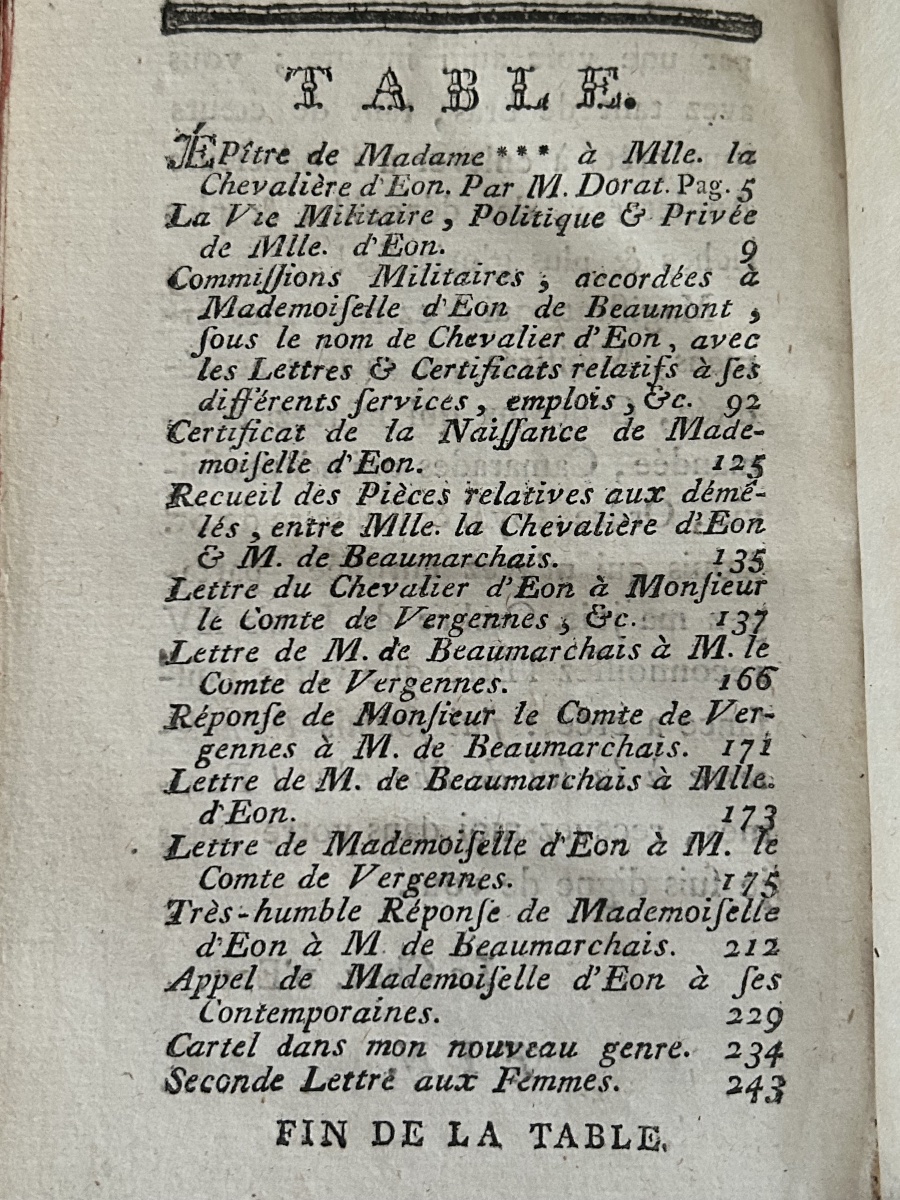 TABLE.
ÉPître de Madame *** à Mlle. la
Chevalière d'Eon. Par M. Dorat. Pag. 5
La Vie Militaire, Politique & Privée
de Mlle. d'Eon. 9
Commiſſions Militaires, accordées à
Mademoiſelle d'Eon de Beaumont,
ſous le nom de Chevalier d'Eon, avec
les Lettres & Certificats relatifs à ſes
différents ſervices, emplois, &c. 92
Certificat de la Naiſſance de Made-
moiſelle d'Eon. 125
Recueil des Pièces relatives aux démê-
lés, entre Mlle. la Chevalière d'Eon
& M. de Beaumarchais. 135
Lettre du Chevalier d'Eon à Monſieur
le Comte de Vergennes, &c. 137
Lettre de M. de Beaumarchais à M. le
Comte de Vergennes. 166
Réponſe de Monſieur le Comte de Ver-
gennes à M. de Beaumarchais. 171
Lettre de M. de Beaumarchais à Mlle.
d'Eon. 173
Lettre de Mademoiſelle d'Eon à M. le
Comte de Vergennes. 175
Très-humble Réponſe de Mademoiſelle
d'Eon à M. de Beaumarchais. 212
Appel de Mademoiſelle d'Eon à ſes
Contemporaines. 229
Cartel dans mon nouveau genre. 234
Seconde Lettre aux Femmes. 243
FIN DE LA TABLE.